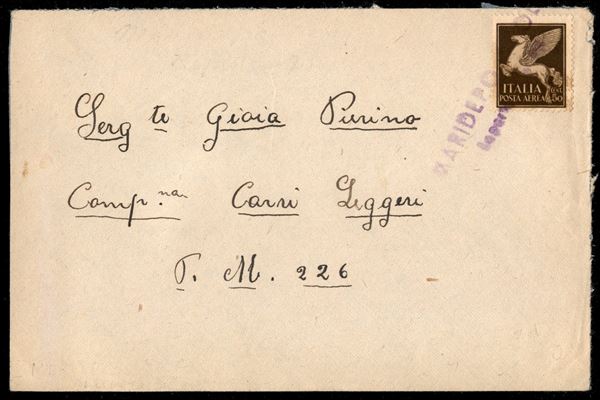 ITALIA
POSTA AEREA
MARIDEPO
Serg te Gioia Purino
Comp.na Carri Leggeri
P. M. 226